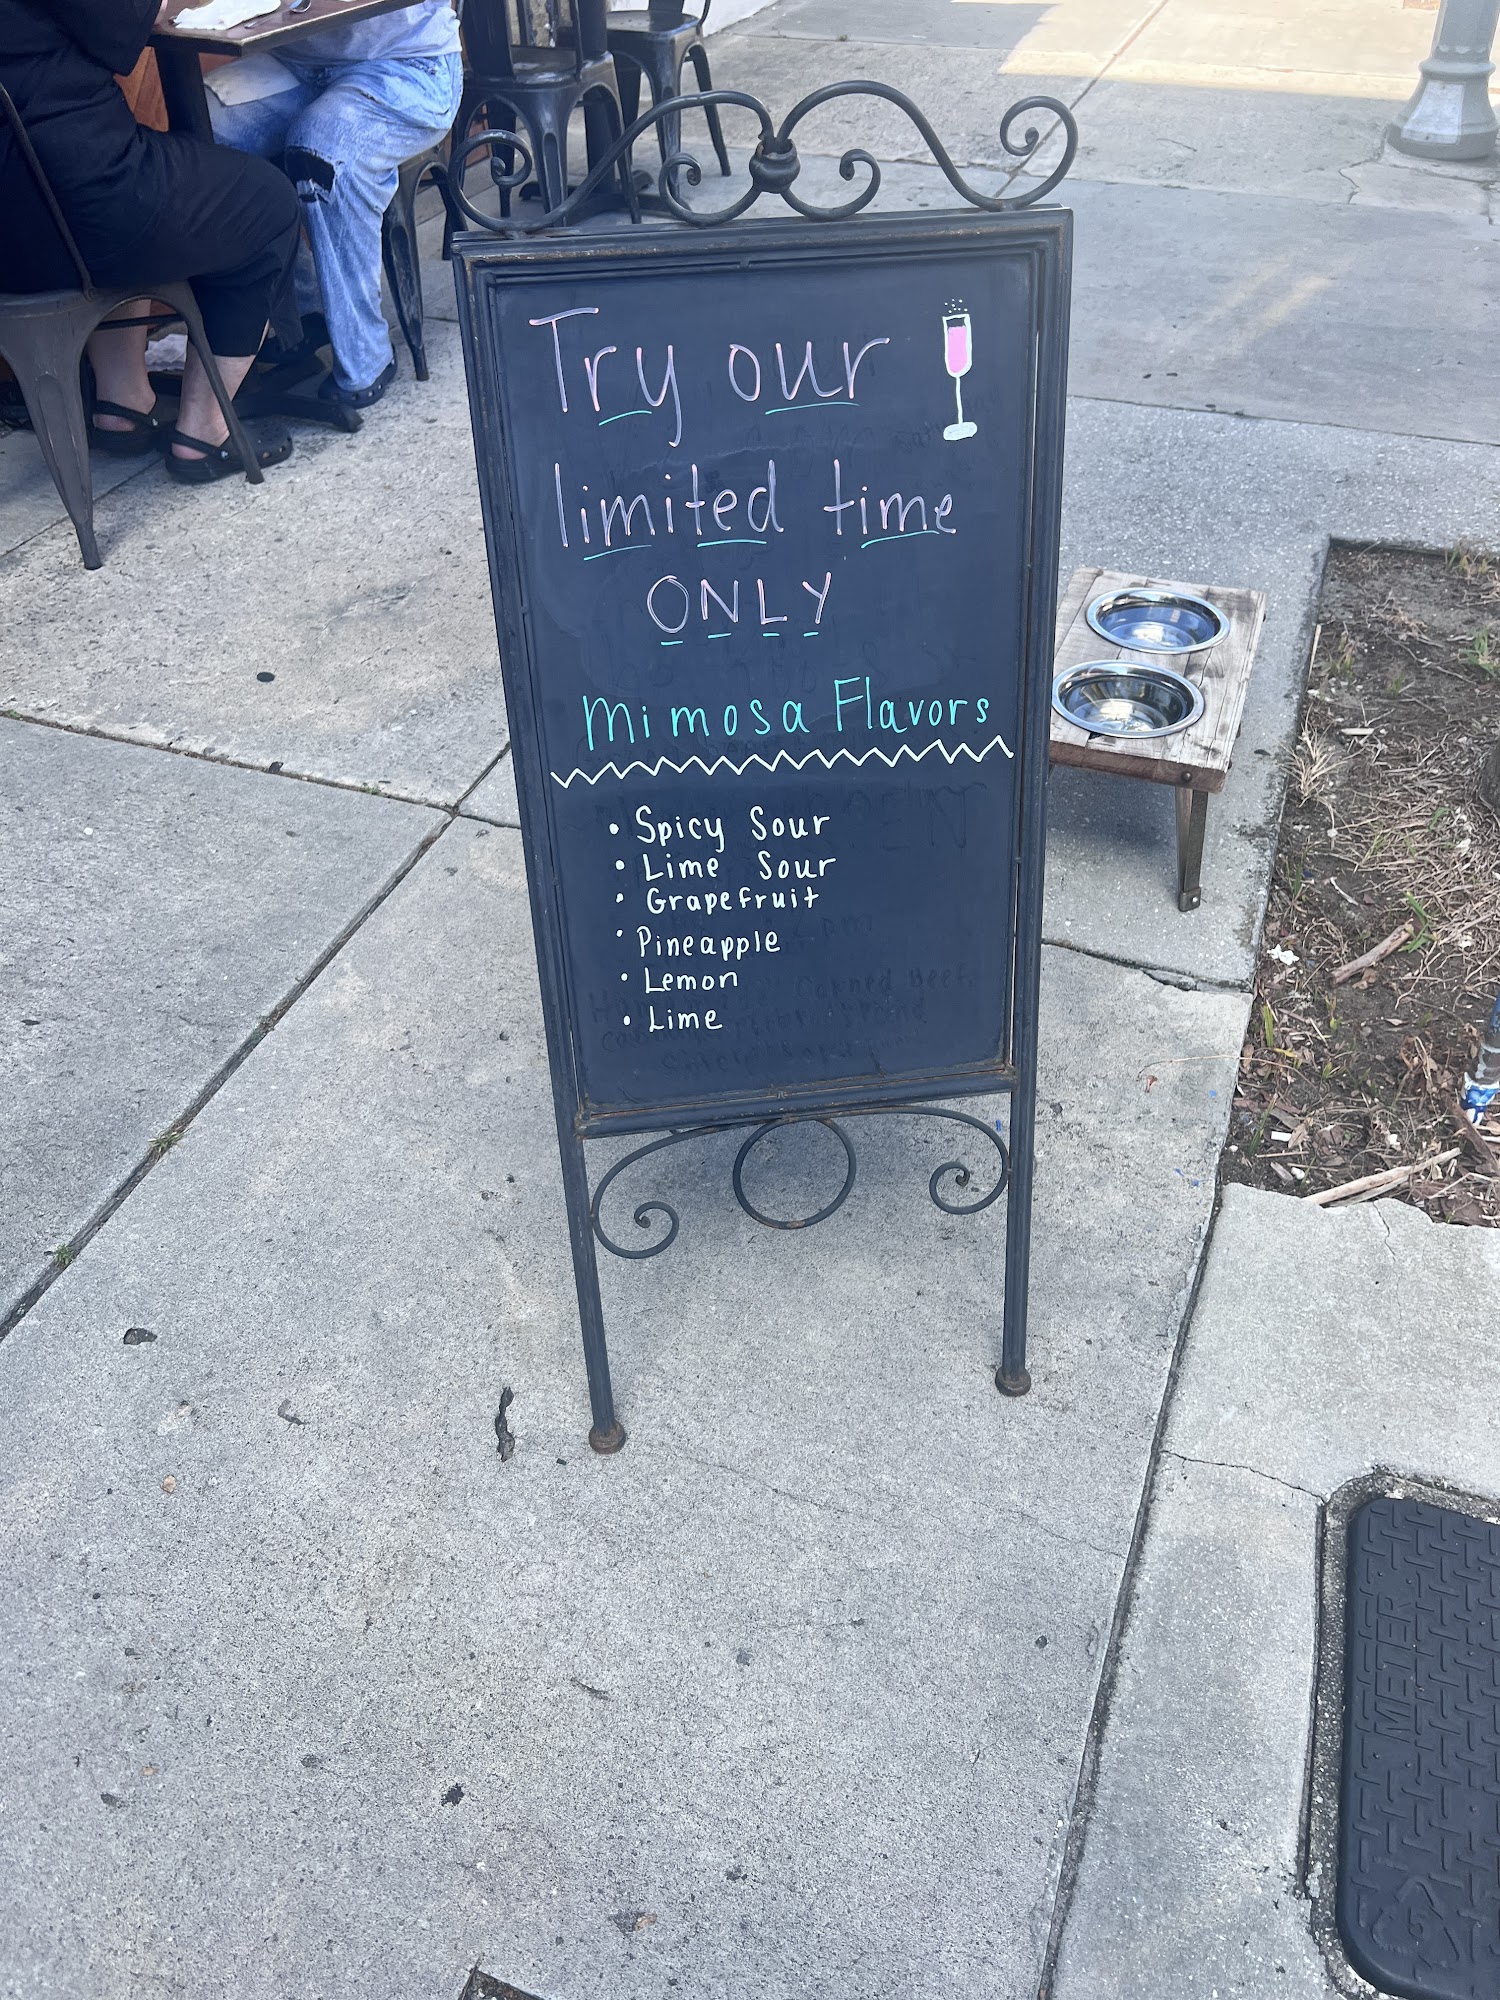 Try our
limited time
ONLY
Mimosa Flavors
• Spicy Sour
• Lime Sour
• Grapefruit
• Pineapple
• Lemon
• Lime
METER